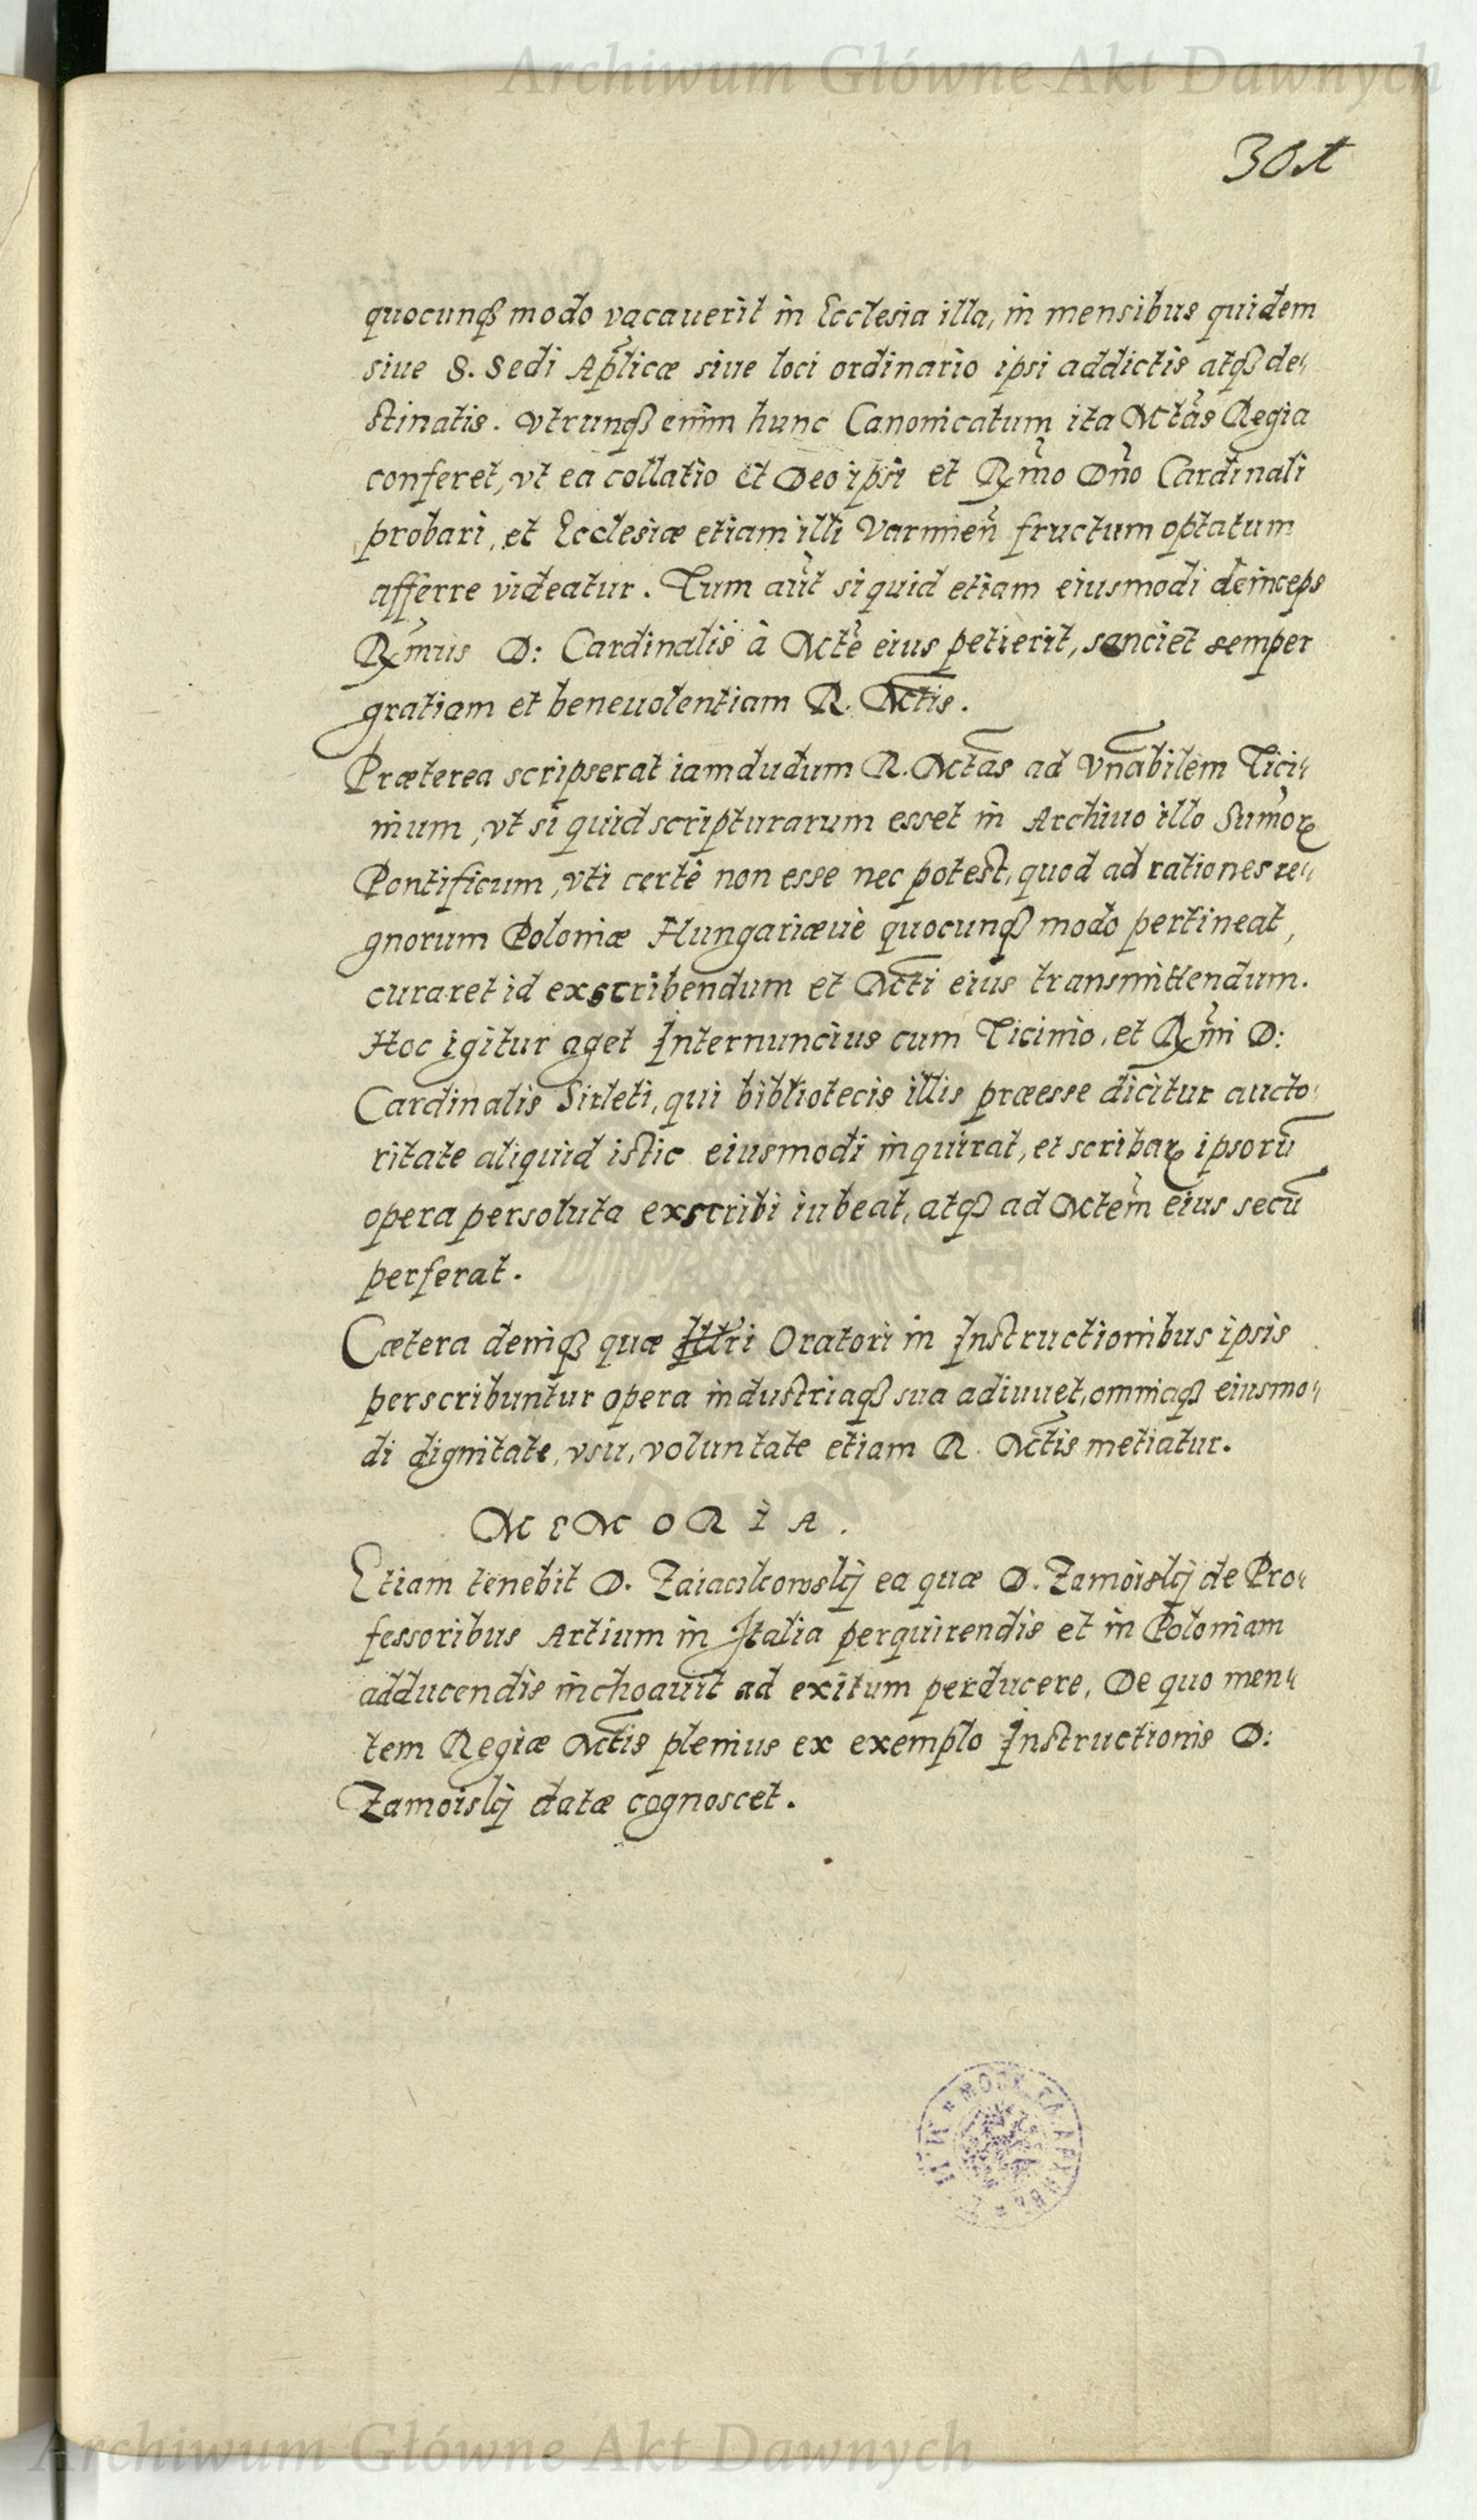 Archiwum Główne Akt Dawnych
quocunq₃ modo vacauerit in Ecclesia illa, in mensibus quidem
siue S. Sedi Apl̃icæ siue loci ordinario ipsi addictis atq₃ de⸗
stinatis. Vtrunq₃ enim hunc Canonicatum ita Mtãs Regia
conferet, vt ea collatio et Deo ipsi et Rr̃mo Dño Cardinali
probari, et Ecclesiæ etiam illi Varmieñ fructum optatum
afferre videatur. Tum aũt si quid etiam eiusmodi deinceps
Rr̃mus D: Cardinalis à Mtẽ eius petierit, sanciet semper
gratiam et beneuolentiam R. Mt̃is.
Præterea scripserat iamdudum R. Mtãs ad Vñabilem Tici⸗
nium, vt si quid scripturarum esset in Archiuo illo Sum̃oꝝ
Pontificum, vti certè non esse nec potest, quod ad rationes re⸗
gnorum Poloniæ Hungariæuè quocunq₃ modo pertineat,
curaret id exscribendum et Mt̃ti eius transmittendum.
Hoc igitur aget Internuncius cum Ticinio, et Rr̃mi D:
Cardinalis Sirleti, qui bibliotecis illis præesse dicitur aucto⸗
ritate aliquid istic eiusmodi inquirat, et scribaꝝ ipsorũ
opera persoluta exscribi iubeat, atq₃ ad Mtem̃ eius secũ
perferat.
Cætera deniq₃ quæ Illr̃i Oratori in Instructionibus ipsis
perscribuntur opera industriaq₃ sua adiuuet, omniaq₃ eiusmo⸗
di dignitate, vsu, voluntate etiam R. Mt̃is metiatur.
MEMORIA.
Etiam tenebit D. Zaiaczkowskÿ ea quæ D. Zamoiskÿ de Pro⸗
fessoribus Artium in Italia perquirendis et in Poloniam
adducendis inchoauit ad exitum perducere, De quo men⸗
tem Regiæ Mt̃is plenius ex exemplo Instructionis D:
Zamoiskÿ datæ cognoscet.
Archiwum Główne Akt Dawnych